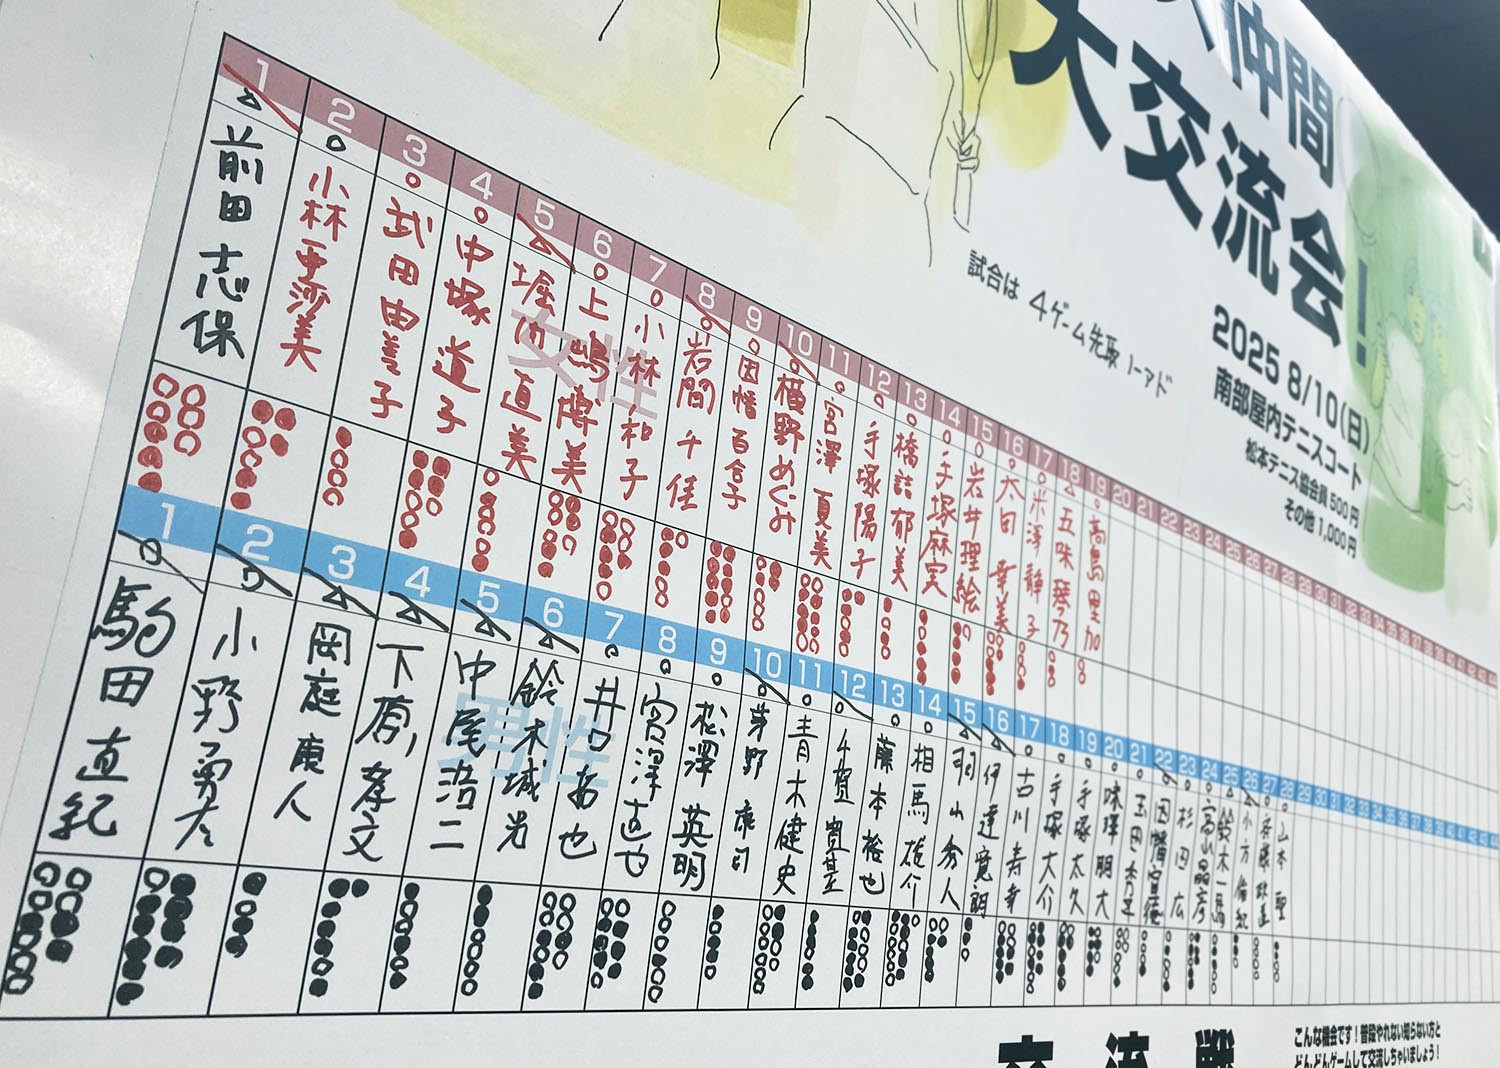 仲間
大交流会!
試合は 4ゲーム先取 ノーアド
2025 8/10(日)
南部屋内テニスコート
松本テニス協会員 500円
その他 1,000円
女性
1 前田 志保
2 小林 亜沙美
3 武田 由美子
4 中塚 道子
5 堀内 直美
6 上嶋 博美
7 小林 和子
8 岩間 千佳
9 因幡 百合子
10 檀野 めぐみ
11 宮澤 夏美
12 手塚 陽子
13 橋詰 郁美
14 手塚 麻実
15 岩井 理絵
16 太田 幸美
17 米澤 静子
18 五味 琴乃
19 高島 里加
20 21 22 23 24 25 26 27 28 29 30 31 32 33 34 35 36 37 38 39 40 41 42 43 44
男性
1 駒田 直紀
2 小野 勇太
3 岡庭 康人
4 下原 孝文
5 中尾 浩二
6 鈴木 城光
7 井口 拓也
8 宮澤 直也
9 松澤 英明
10 茅野 康司
11 青木 健史
12 千賀 寛基
13 藤本 裕也
14 相馬 雄介
15 羽山 秀人
16 伊達 寛朗
17 古川 寿幸
18 手塚 大介
19 手塚 太久
20 味澤 朋大
21 玉田
22 因幡
23 杉田 広
24 高山 晶彦
25 鈴木 一馬
26 小方
27 斉藤
28 山本 聖
29 30 31 32 33 34 35 36 37 38 39 40 41 42 43 44
交流戦
こんな機会です!普段やれない知らない方と
どんどんゲームして交流しちゃいましょう!